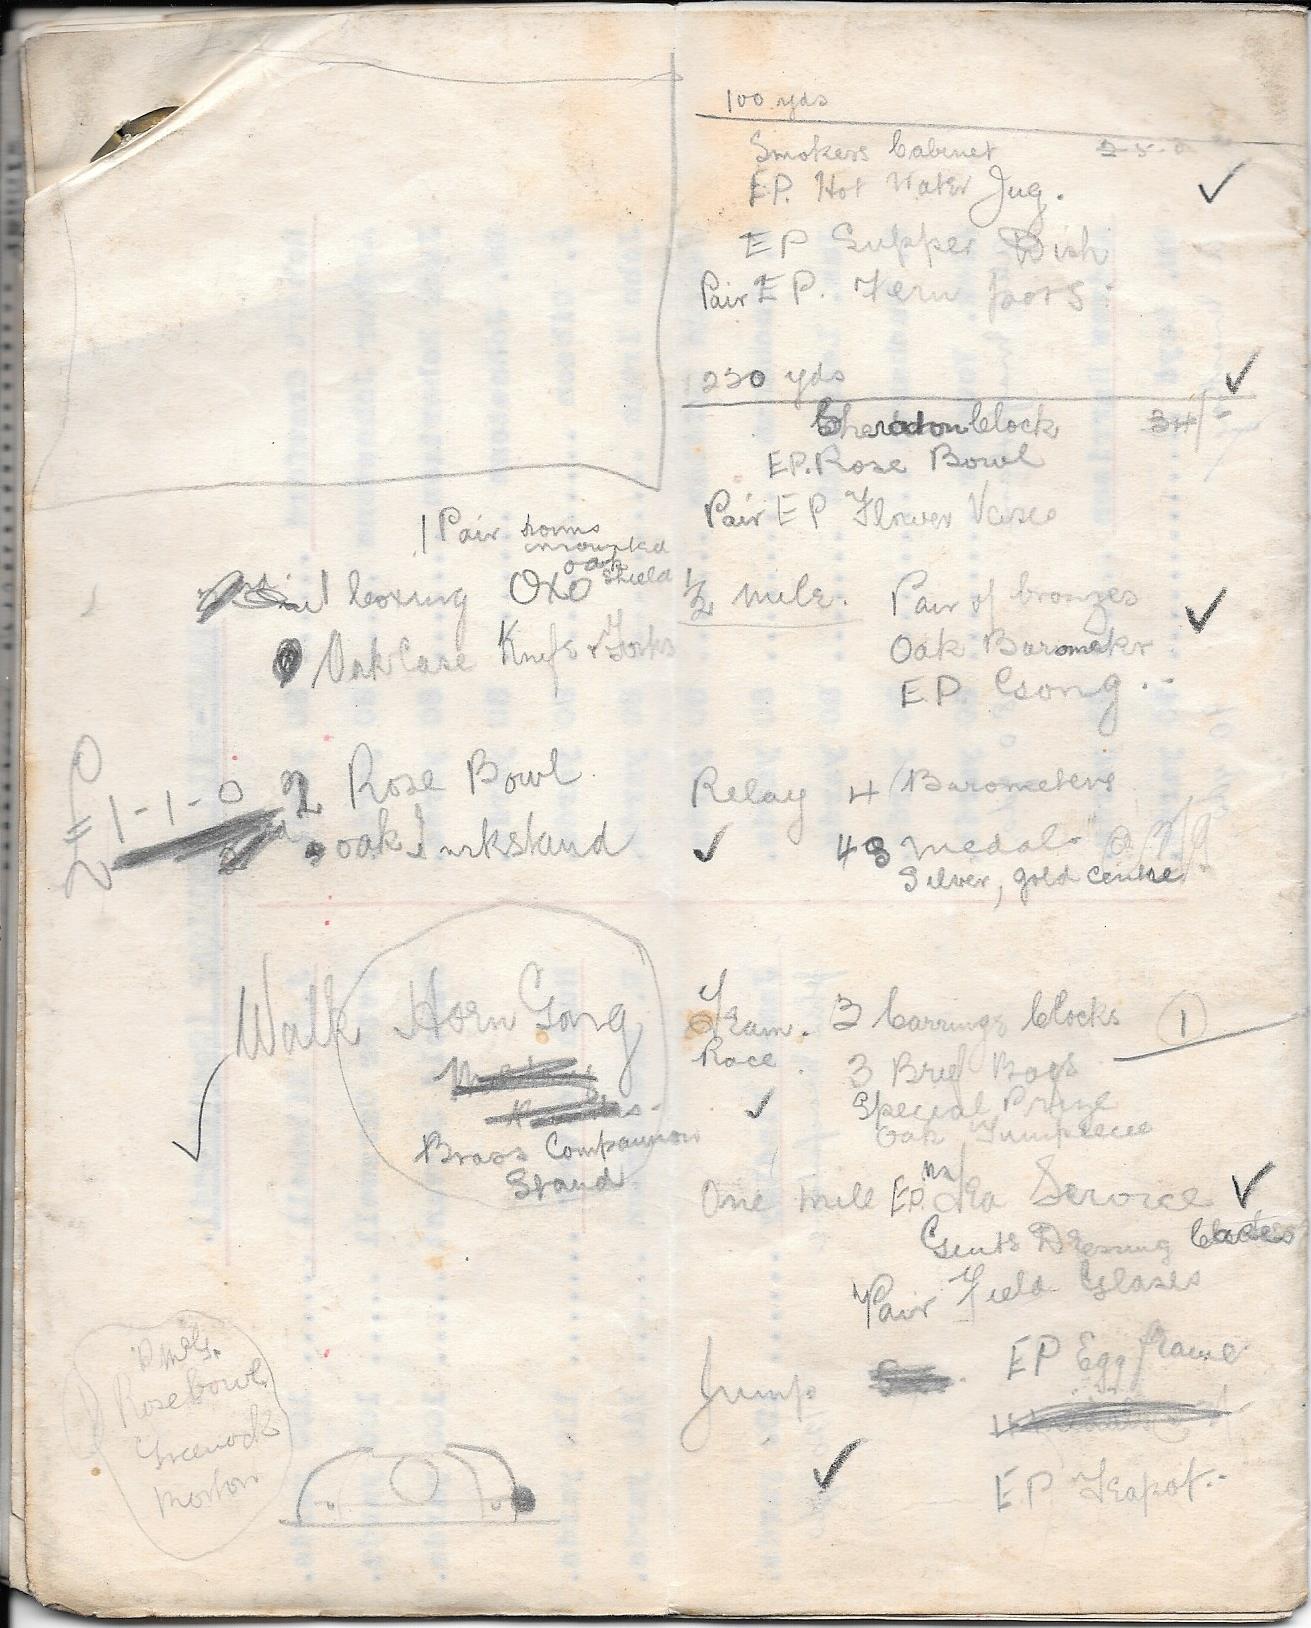 1 Pair horns
mounted
oak
shield
boxing OXO
Oak Case Knife & Forks
£1-1-0 2 Rose Bowl
oak Inkstand
Walk Horn Gong
Brass Companion
Stand
Rosebowl
Greenock
Morton
100 yds
Smokers Cabinet 2-5-0
EP. Hot Water Jug.
EP Supper Dish
Pair EP. Fern pots.
220 yds
Sheraton Clock 34/-
EP. Rose Bowl
Pair EP Flower Vases
½ mile. Pair of bronzes
Oak Barometer
EP Gong.
Relay 4 Barometers
48 medals @ 3/9
Silver, gold centre
Team. 3 Carriage Clocks 1
Race 3 Brief Bags
Special Prize
Oak Timepiece
One mile EP. Tea Service
Gents Dressing
Pair Field Glases
Jump EP Egg frame
EP Teapot.